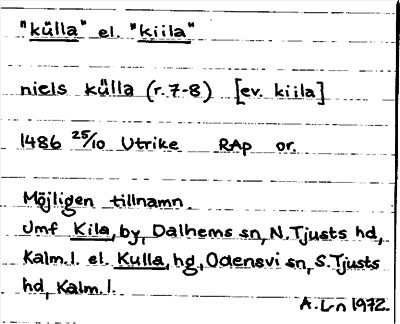 "külla" el. "kiila"
niels külla (r. 7-8) [ev. kiila]
1486 25/10 Utrike RAp or.
Möjligen tillnamn.
Jmf Kila, by, Dalhems sn, N. Tjusts hd,
Kalm. l. el. Kulla, hg, Odensvi sn, S. Tjusts
hd, Kalm. l.
A. L-n 1972.